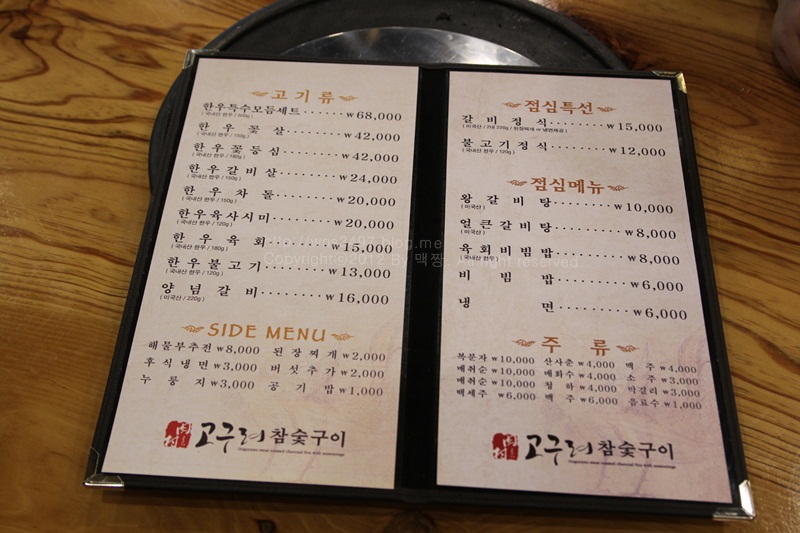 고기류
한우특수모듬세트 ········ ₩68,000
( 국내산 한우 / 600g )
한우꽃살 ········ ₩42,000
( 국내산 한우 / 150g )
한우꽃등심 ········ ₩42,000
( 국내산 한우 / 180g )
한우갈비살 ········ ₩24,000
( 국내산 한우 / 150g )
한우차돌 ········ ₩20,000
( 국내산 한우 / 150g )
한우육사시미 ········ ₩20,000
( 국내산 한우 / 120g )
한우육회 ········ ₩15,000
( 국내산 한우 / 180g )
한우불고기 ········ ₩13,000
( 국내산 한우 / 120g )
양념갈비 ········ ₩16,000
( 미국산 / 220g )
SIDE MENU
해물부추전 ₩8,000 된장찌개 ₩2,000
후식냉면 ₩3,000 버섯추가 ₩2,000
누룽지 ₩3,000 공기밥 ₩1,000
고구려 참숯구이
점심특선
갈비정식 ········ ₩15,000
불고기정식 ········ ₩12,000
( 국내산 한우 / 120g )
점심메뉴
왕갈비탕 ········ ₩10,000
( 미국산 )
얼큰갈비탕 ········ ₩8,000
( 미국산 )
육회비빔밥 ········ ₩8,000
( 국내산 한우 )
비빔밥 ········ ₩6,000
냉면 ········ ₩6,000
주류
복분자 ₩10,000 산사춘 ₩4,000 맥주 ₩4,000
매취순 ₩10,000 매화수 ₩4,000 소주 ₩3,000
매취순 ₩10,000 청하 ₩4,000 막걸리 ₩3,000
백세주 ₩6,000 맥주 ₩6,000 음료수 ₩1,000
고구려 참숯구이
Copyright©2012 By 맥짱. All right reserved